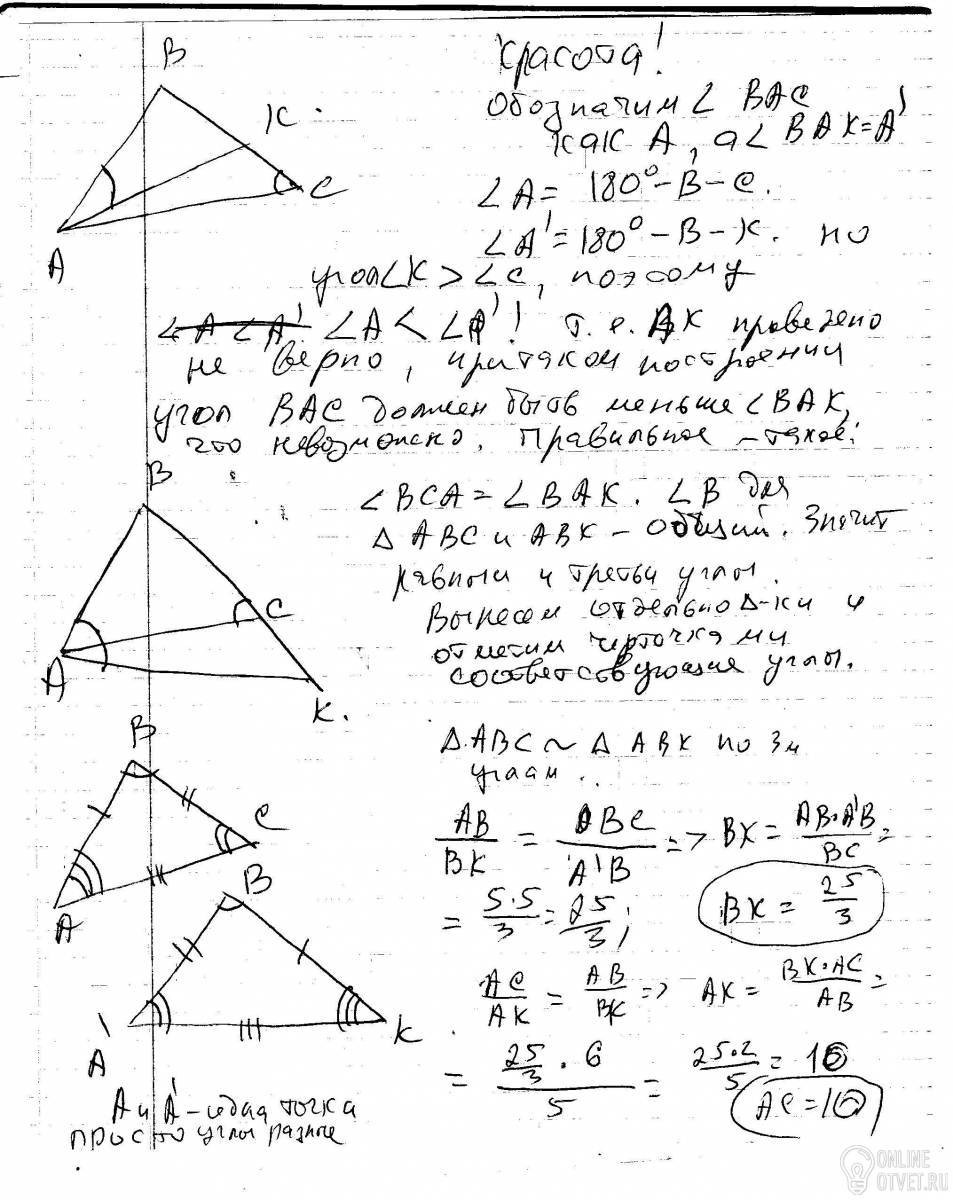 B
Красота!
обозначим ∠ BAC
как A, а ∠ BAK = A'
K
C
A
∠A = 180° - B - C.
∠A' = 180° - B - K. но
угол ∠K > ∠C, поэтому
∠A < ∠A' ∠A < ∠A'! т.е. AK проведено
не верно, при таком построении
угол BAC должен быть меньше ∠BAK,
что невозможно. Правильное - такое:
B
∠BCA = ∠BAK. ∠B для
Δ ABC и ABK - общий. Значит
равны и третьи углы.
C
Вынесем отдельно Δ-ки и
отметим черточками
A
соответствующие углы.
K.
B
Δ ABC ~ Δ ABK по 3м
углам..
C
A
AB/BK = BC/A'B => BK = AB·A'B/BC =
= 5·5/3 = 25/3; BK = 25/3
B
AC/AK = AB/BK => AK = BK·AC/AB =
A'
K
= 25/3 · 6 / 5 = 25·2/5 = 10
AC = 10
A и A' - одна точка
просто углы разные
ONLINE
OTVET.RU